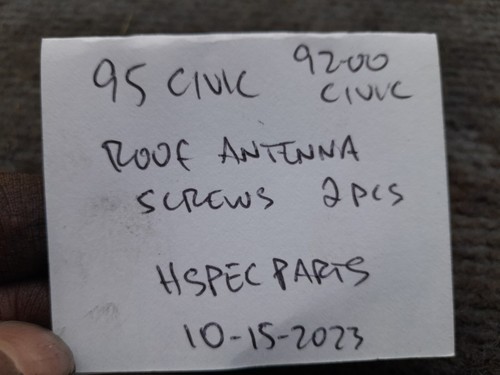 95 CIVIC 92-00 CIVIC
ROOF ANTENNA
SCREWS 2PCS
HSPEC PARTS
10-15-2023